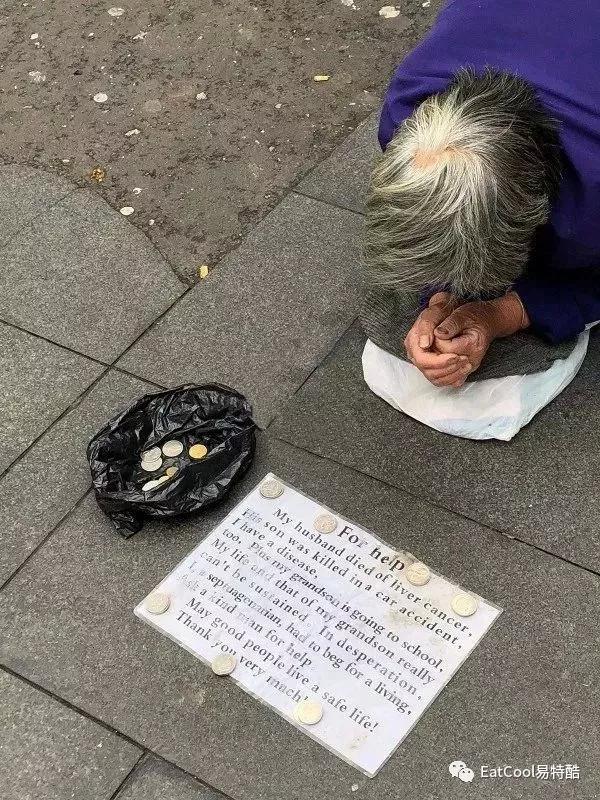 For help
My husband died of liver cancer,
His son was killed in a car accident,
I have a disease,
too, Plus my grandson is going to school,
My life and that of my grandson really
can't be sustained. In desperation,
I, a septuagenarian, had to beg for a living,
a kind man for help.
May good people live a safe life!
Thank you very much!
EatCool易特酷